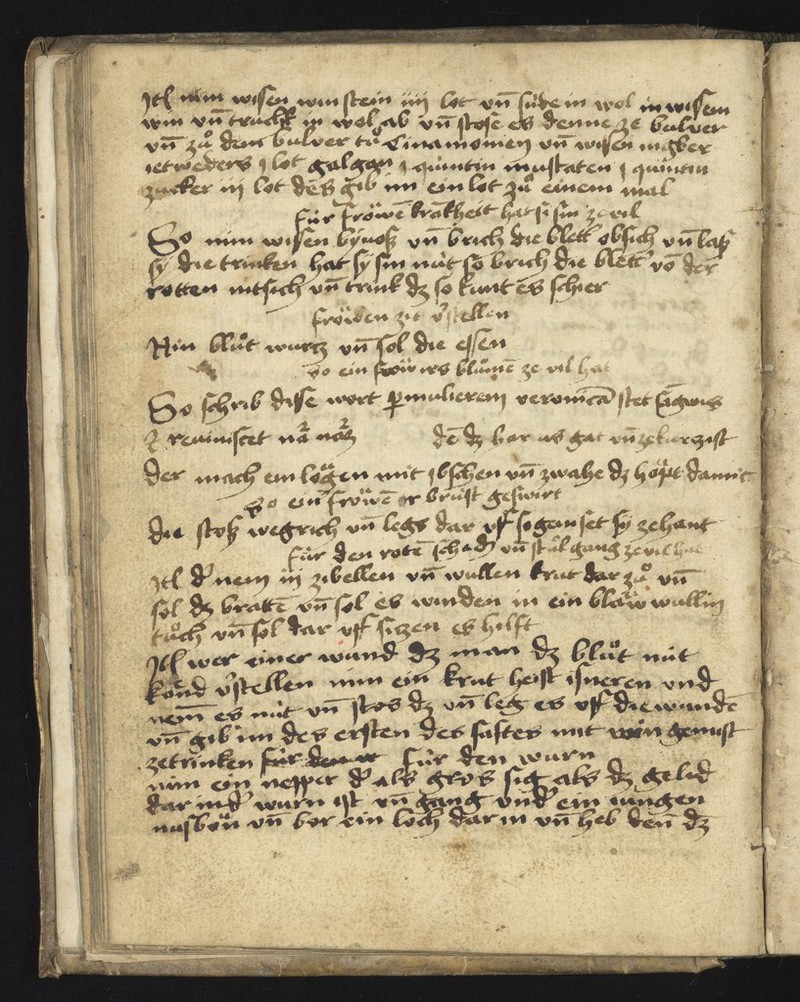 Itē nim wisen winstein iiii lot vn̄ sùde in wol in wisem
win vn̄ trùchk in wol ab vn̄ stose es denne ze bulver
vn̄ zuͦ dem bulver tuͦ Cinamomen vn̄ wisen ingber
ietweders j lot galgan j quintin muscaten j quintin
zucker iij lot des gib im ein lot zuͦ einem mal
fùr froͤwē krākheit hat si sin ze vil
So nim wisen byͤuos vn̄ brich die blett obsich vn̄ las
sÿ die trinken hat sÿ sin nùt so brich die blett vō der
rotten nitsich vn̄ trink dz so kunt es schier
froͤwen zit v̓stellen
Nin bluͦt wurtz vn̄ sol die essen
So ein froͤw irs bluͦmē ze vil hat
So schrib disse wort p mulierem veronicā stet
der mach ein loͤgen mit ibschen vn̄ zwahe dz hoͤpt damit
So ein froͤwē ir brùst geswirt
die stos wegrich vn̄ legs dar vff so geniset sÿ zehant
fùr den rotē schadē vn̄ stuͦlgang ze vil hat
Itē d̓ nem iij zibellen vn̄ wullen krut dar zuͦ vn̄
sol dz bratē vn̄ sol es winden in ein blaͤw wullin
tuͦch vn̄ sol dar vff sizen es hilft
Itē wer einer wund dz man dz bluͦt nùt
koͤnd v̓stellen nim ein krut heist isneren vnd
nem̄ es nùt vn̄ stos dz vn̄ leg es vff die wundē
vn̄ gib im des ersten des saftes mit win gemist
zetrinken fùr den wurn
nim ein nepper d̓ als gros sig als dz gelid
dar in d̓ wurn ist vn̄ gang vnd̓ ein iungen
nusboͧn vn̄ bor ein loch dar in vn̄ heb den̄ dz